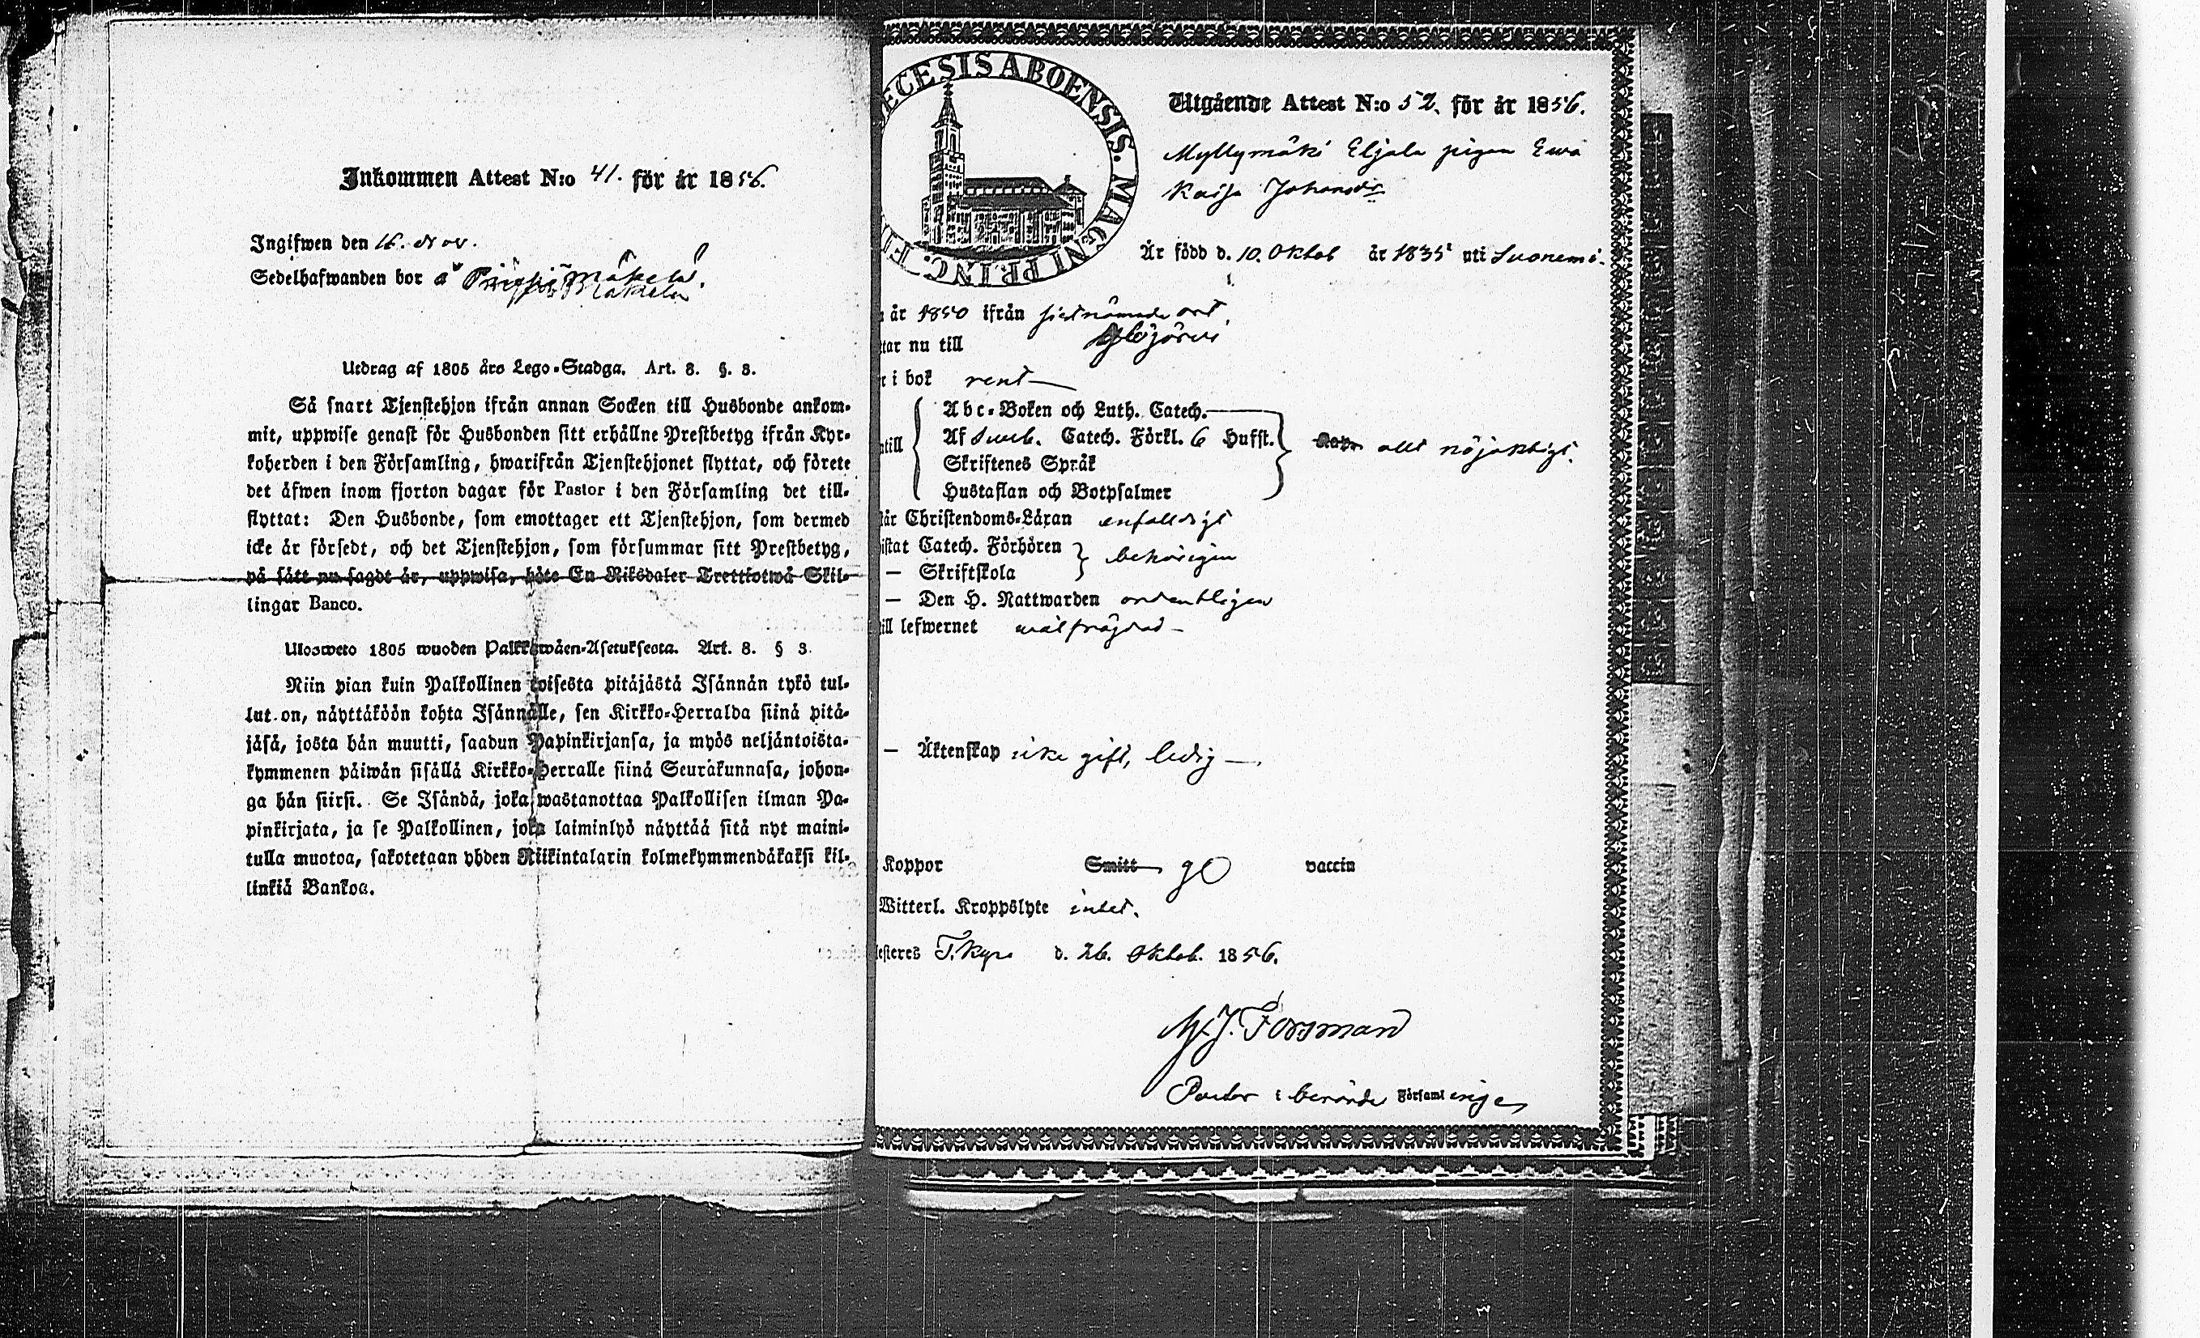 Inkommen Attest N:o 41. för år 1856.
Ingifwen den 16. Nov.
Sedelhafwanden bor å Mäkelä.
Utdrag af 1805 års Lego-Stadga. Art. 8. §. 3.
Så snart Tjenstehjon ifrån annan Socken till Husbonde ankom-
mit, uppwise genast för Husbonden sitt erhållne Prestbetyg ifrån Kyr-
koherden i den Församling, hwarifrån Tjenstehjonet flyttat, och förete
det äfwen inom fjorton dagar för Pastor i den Församling det till-
flyttat: Den Husbonde, som emottager ett Tjenstehjon, som dermed
icke är försedt, och det Tjenstehjon, som försummar sitt Prestbetyg,
på sätt nu sagdt är, uppwisa, böte En Riksdaler Trettiotwå Skil-
lingar Banco.
Ulosweto 1805 wuoden Palkkawäen-Asetuksesta. Art. 8. § 3.
Niin pian kuin Palkollinen toisesta pitäjästä Isännän tykö tul-
lut on, näyttäköön kohta Isännälle, sen Kirkko-Herralda siinä pitä-
jäsä, josta hän muutti, saadun Papinkirjansa, ja myös neljäntoista-
kymmenen päiwän sisällä Kirkko-Herralle siinä Seurakunnasa, johon-
ga hän siirsi. Se Isändä, joka wastanottaa Palkollisen ilman Pa-
pinkirjata, ja se Palkollinen, joka laiminlyö näyttää sitä nyt maini-
tulla muotoa, sakotetaan yhden Riikintalarin kolmekymmendäkaksi kil-
linkiä Bankoa.
ECESIS ABOENSIS. MAGNI PRINC. FI
Utgående Attest N:o 52. för år 1856.
Myllymäki Eljala pigan Ewa
Kaisa Johansdr
Är född d. 10. Oktob år 1835 uti Suoniemi.
år 1850 ifrån sistnämnde ort.
tar nu till Ylöjärvi
i bok rent
Abc-Boken och Luth. Catech.
ntill Af Sweb. Catech. Förkl. 6 Hufst. allt nöjaktigt.
Skriftenes Språk
Hustaflan och Botpsalmer
Christendoms-Läran enfaldigt
istat Catech. Förhören behörigen
— Skriftskola
— Den H. Nattwarden ordentligen
ill lefwernet wälfrägdad —
— Äktenskap icke gift, ledig —.
Koppor Smitt go vaccin
Witterl. Kroppslyte intet.
esteres T.kyro d. 26. Oktob. 1856.
M. J. Forsman
Pastor i berörde Församlingen